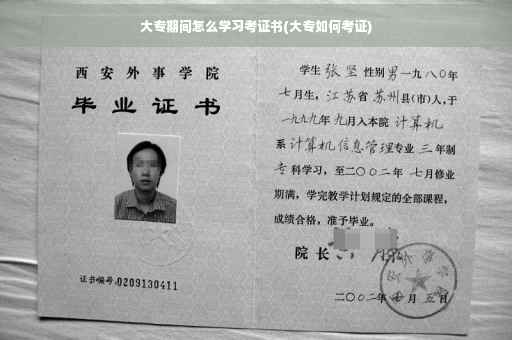 大专期间怎么学习考证书(大专如何考证)
西安外事学院
毕业证书
证书编号:0209130411
学生 张坚 性别 男 一九八〇年
七月生,江苏省 苏州 县(市)人,于
一九九九年 九月入本院 计算机
系 计算机信息管理 专业 三 年制
专 科学习,至二〇〇二年 七月修业
期满,学完教学计划规定的全部课程,
成绩合格,准予毕业。
院长
二〇〇二年 月 五日